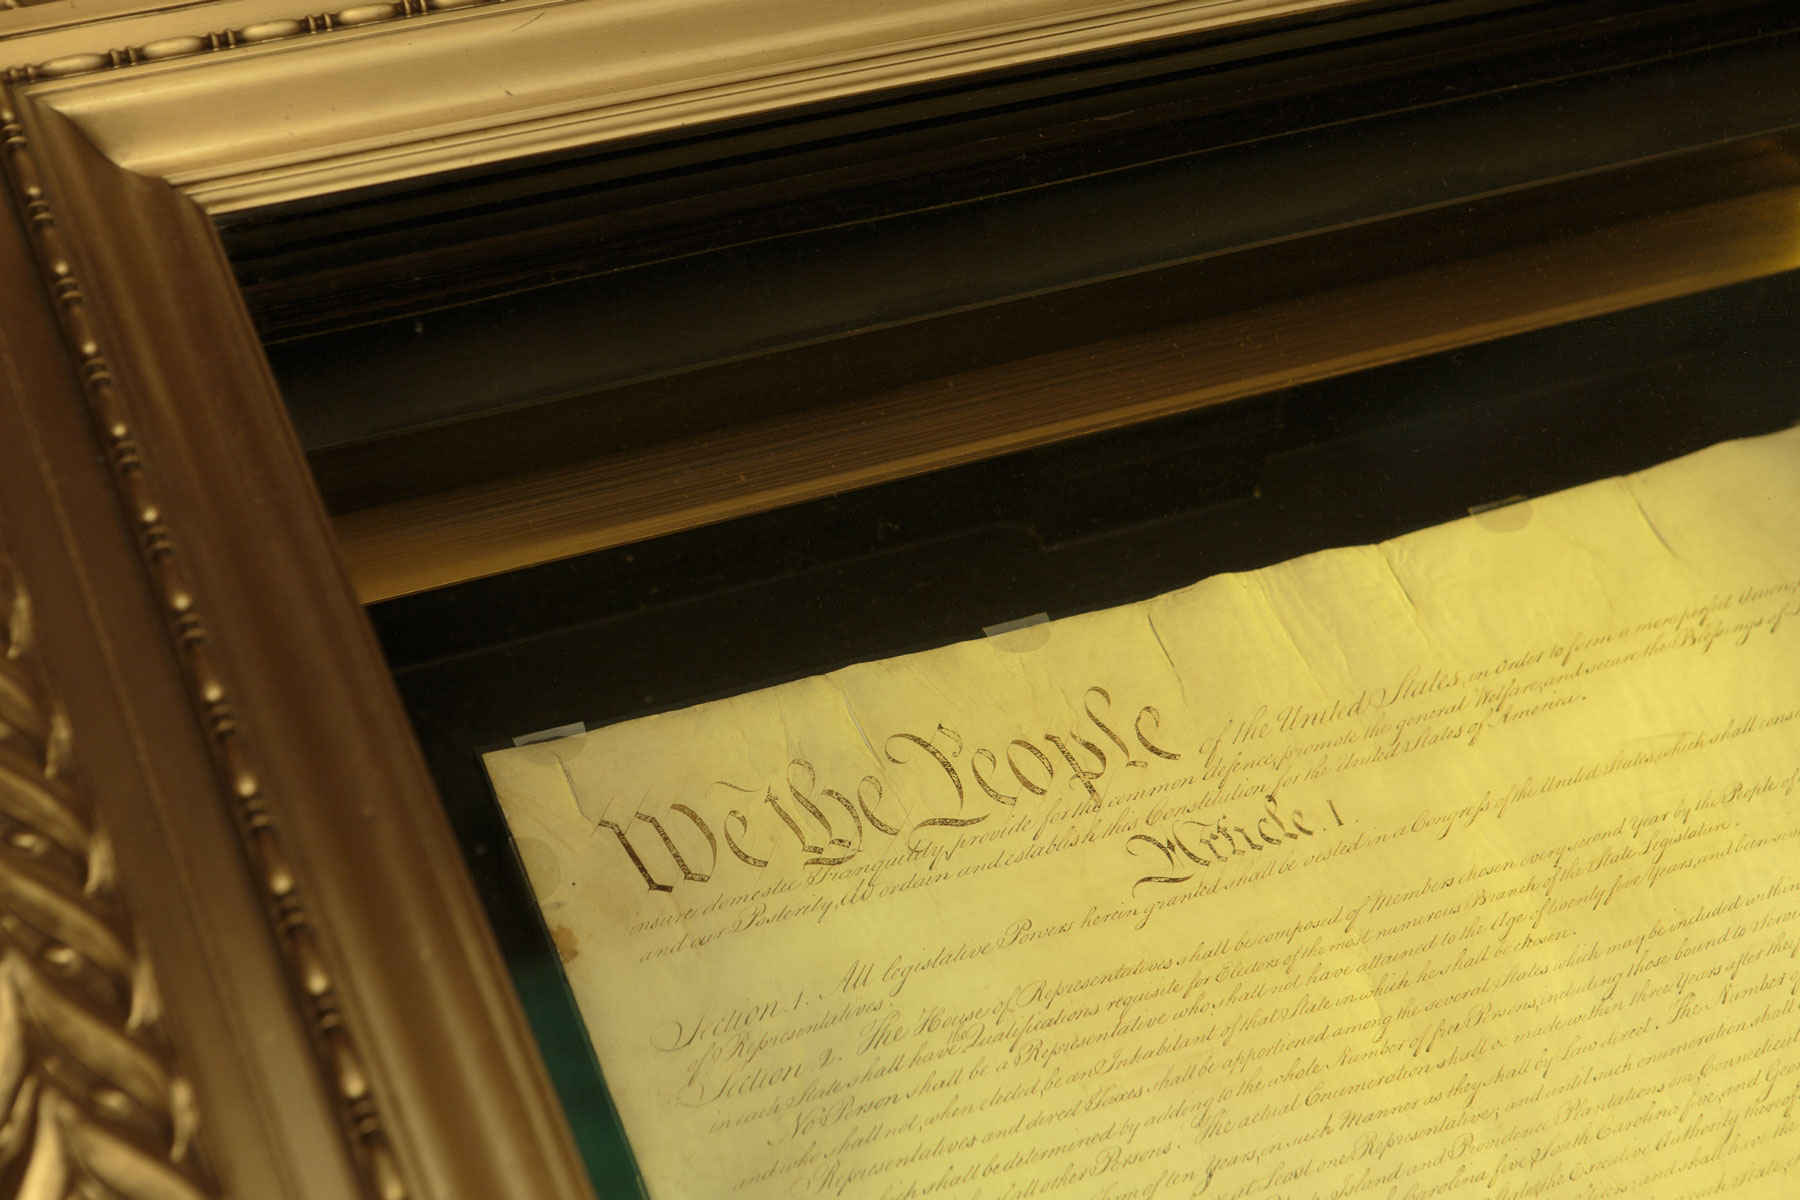 We the People of the United States, in Order to form a more perfect Union,
insure domestic Tranquility, provide for the common defence, promote the general Welfare, and secure the Blessings of
and our Posterity, do ordain and establish this Constitution for the United States of America.
Article. I.
Section. 1. All legislative Powers herein granted shall be vested in a Congress of the United States, which shall consi
of Representatives.
Section. 2. The House of Representatives shall be composed of Members chosen every second Year by the People of
in each State shall have the Qualifications requisite for Electors of the most numerous Branch of the State Legislature.
No Person shall be a Representative who shall not have attained to the Age of twenty five Years, and been seve
and who shall not, when elected, be an Inhabitant of that State in which he shall be chosen.
Representatives and direct Taxes shall be apportioned among the several States which may be included within
which shall be determined by adding to the whole Number of free Persons, including those bound to Servic
all other Persons. The actual Enumeration shall be made within three Years after the
Term of ten Years, in such Manner as they shall by Law direct. The Number of
at Least one Representative; and until such enumeration shall
Island and Providence Plantations one, Connecticut
Carolina five, South Carolina five, and Geor
the Executive Authority thereof
and shall have the
each State,